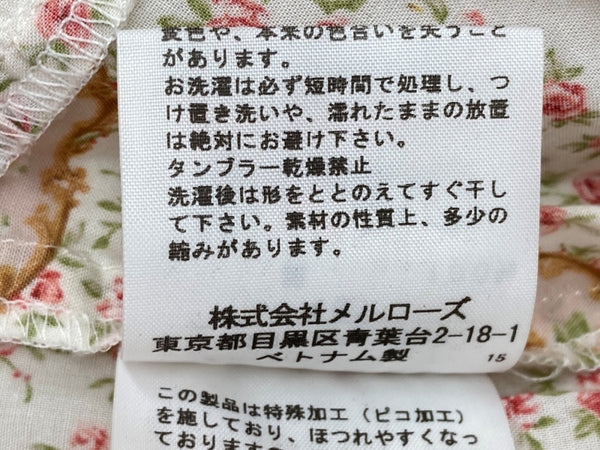 変色や、本来の色合いを失うこと
があります。
お洗濯は必ず短時間で処理し、つ
け置き洗いや、濡れたままの放置
は絶対にお避け下さい。
タンブラー乾燥禁止
洗濯後は形をととのえてすぐ干し
て下さい。素材の性質上、多少の
縮みがあります。
株式会社メルローズ
東京都目黒区青葉台2-18-1
ベトナム製
15
この製品は特殊加工（ピコ加工）
を施しており、ほつれやすくなっ
ておりますの